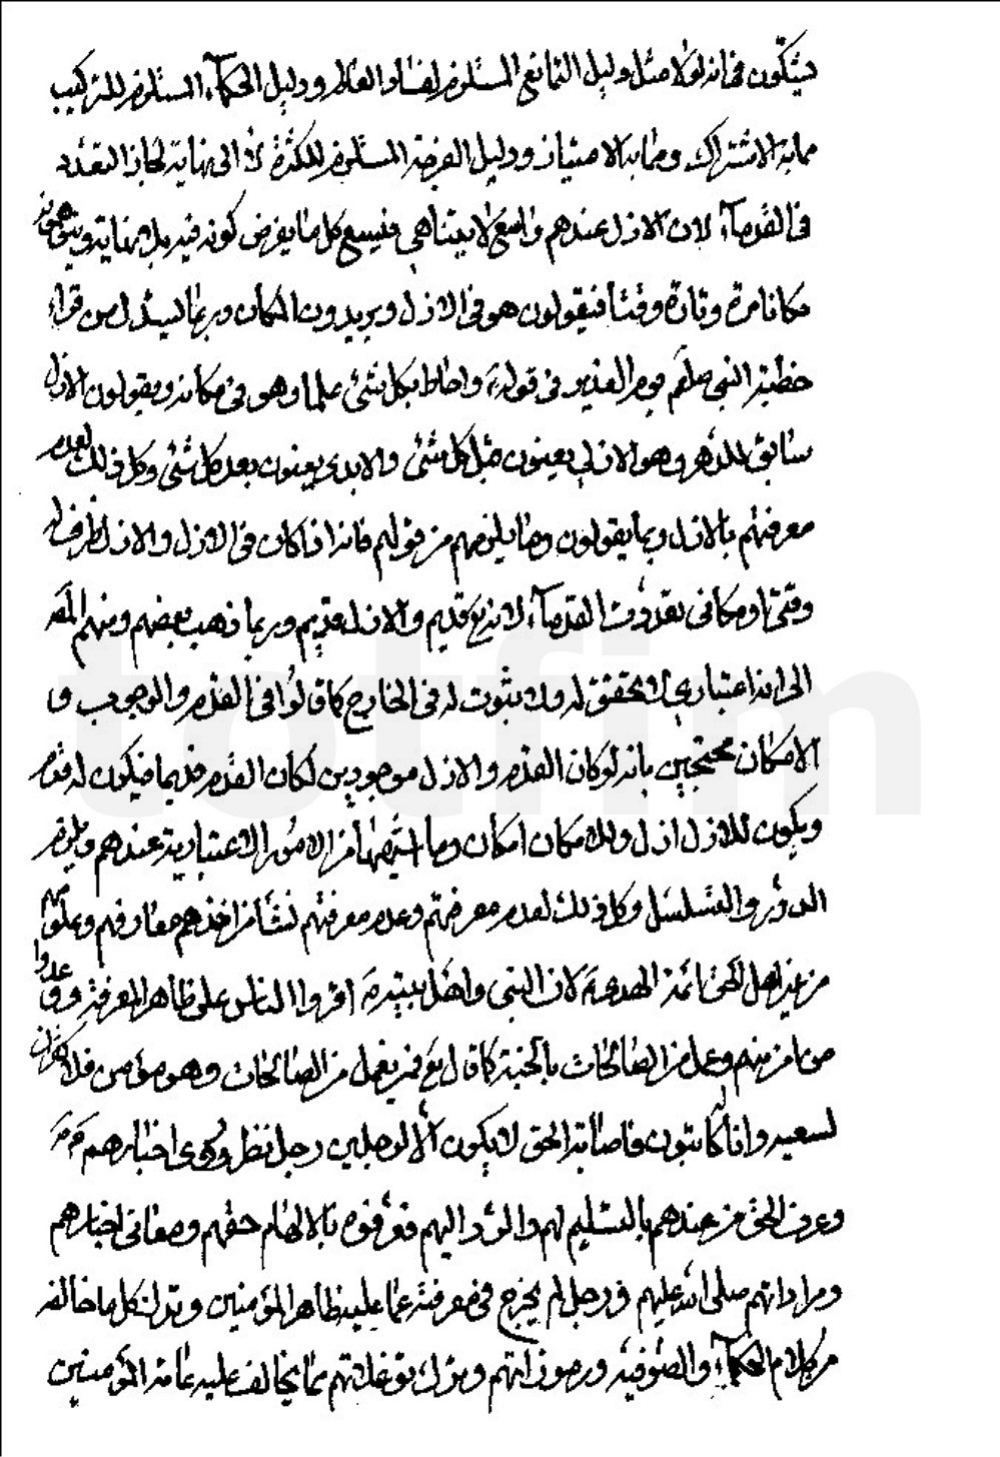 يشكّون فى انه لولا مثل دليل التمانع المستلزم لفساد العالم ودليل الحكمآء المستلزم للتركيب
مما به الاشتراك ومما به الامتياز ودليل الفرجة المستلزم للكثرة لا الى نهاية لجاز التعدّد
فى القدمآء لان الازل عندهم واسع لا يتناهى فيسع كل ما يفرض كونه فيه بلا نهاية
مكانا مرة وتارة وقتا فيقولون هو فى الازل ويريدون المكان وربما يستدل من قراء
خطبة النبى صلعم يوم الغدير فى قوله واحاط بكل شئ علما وهو فى مكانه ويقولون الازل
سابق للدهر وهو الازلى يعنون قبل كل شئ والابدى يعنون بعد كل شئ وكل ذلك لعدم
معرفتهم بالازل وبما يقولون وما يلزمهم من قولهم فانه اذا كان فى الازل والازل ظرف له
وقتى او مكانى تعدّدت القدمآء لانه تع قديم والازل قديم وربما ذهب بعضهم ومنهم
الى انه اعتبارى لا تحقق له ولا ثبوت له فى الخارج كما قالوا فى القدم والوجوب و
الامكان محتجين بانه لو كان القدم والازل موجودين لكان القدم قديما فيكون له قدم
ويكون للازل ازل وللامكان امكان وما اشبهها من الامور الاعتبارية عندهم ويلزم
الدور والتسلسل وكل ذلك لعدم معرفتهم وعدم معرفتهم نشأ من اخذهم معارفهم وعلومهم
من غير اهل الحق ائمة الهدى ع لان النبى واهل بيته ص اقروا الناس على ظاهر المعرفة ووعدوا
من امن منهم وعمل من الصالحات بالجنة كما قال تع فمن يعمل من الصالحات وهو مؤمن فلا كفران
لسعيه وانا له كاتبون فاصابة الحق لا يكون الا لرجلين رجل نظر وروى اخبارهم
وعرف الحق من عندهم بالتسليم لهم والرد اليهم فعرفوه بالالهام حقهم ومعانى اخبارهم
ومراداتهم صلى الله عليهم ورجل لم يخرج فى معرفته عما عليه ظاهر المؤمنين وترك كل ما خالف
من كلام الحكمآء والصوفية ورموزاتهم وترك توغلاتهم مما يخالف عليه عامة المؤمنين